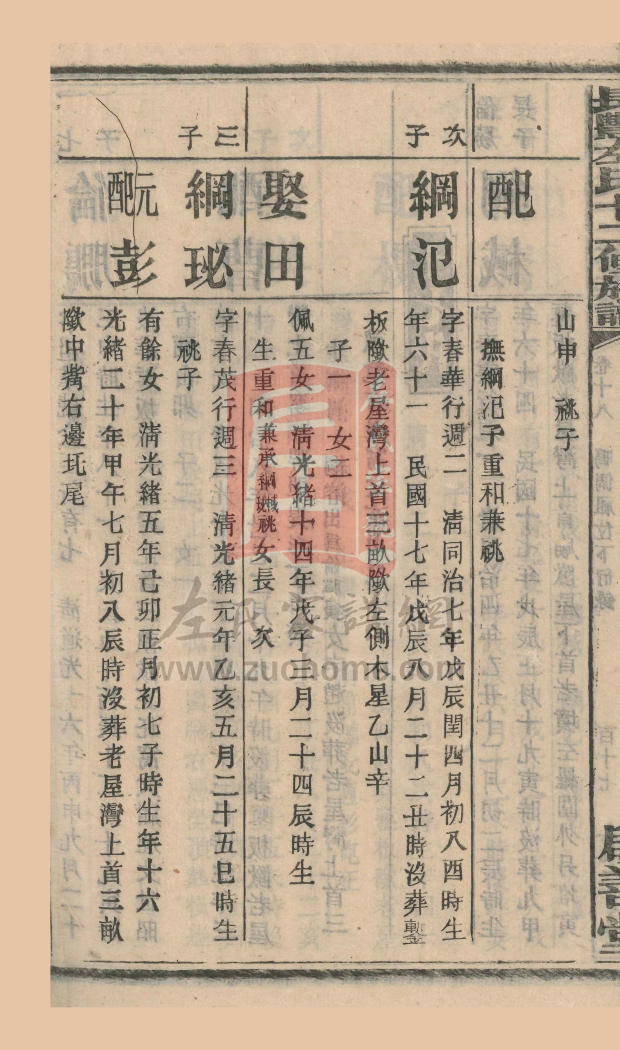 長灣左氏十二修族譜 卷十八 百十七
配
山申 祧子
撫綱汜子重和兼祧
次子
綱汜
字春華行週二 淸同治七年戊辰閏四月初八酉時生
年六十一 民國十七年戊辰八月二十二丑時沒葬鏨
板墩老屋灣上首三畝墩左側木星乙山辛
娶田
子一 女二
佩五女 淸光緒十四年戊子三月二十四辰時生
生重和兼承綱棫綱珌祧 女長 次
三子
綱珌
字春茂行週三 淸光緒元年乙亥五月二十五巳時生
祧子
元配彭
有餘女 淸光緒五年己卯正月初七子時生年十六
光緒二十年甲午七月初八辰時沒葬老屋灣上首三畝
墩中嘴右邊圫尾
左氏雲譜網
www.zuohome.com